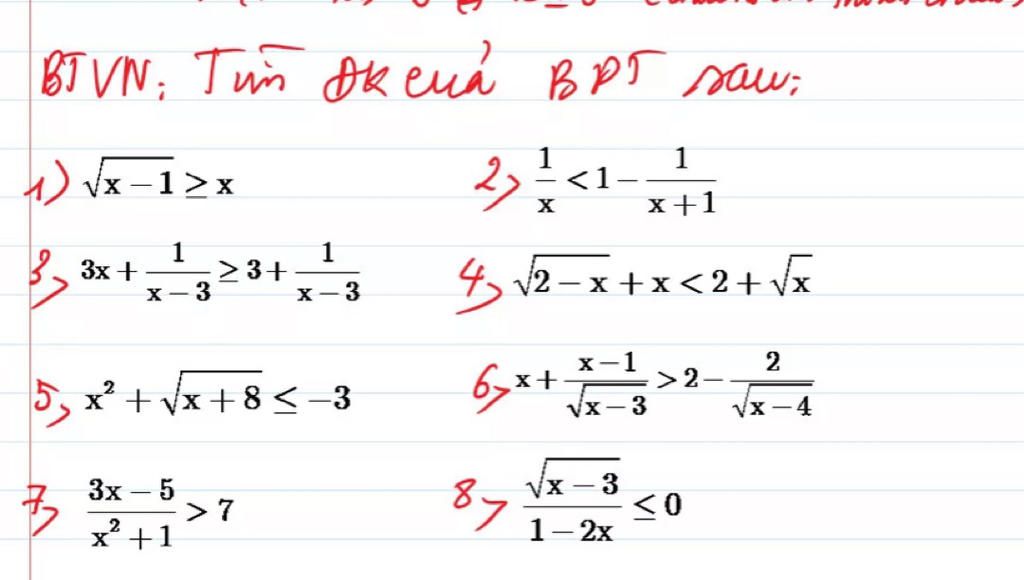 BTVN: Tìm ĐK của BPT sau:
1) √(x − 1) ≥ x
2) 1/x < 1 − 1/(x + 1)
3) 3x + 1/(x − 3) ≥ 3 + 1/(x − 3)
4) √(2 − x) + x < 2 + √x
5) x² + √(x + 8) ≤ −3
6) x + (x − 1)/√(x − 3) > 2 − 2/√(x − 4)
7) (3x − 5)/(x² + 1) > 7
8) √(x − 3)/(1 − 2x) ≤ 0